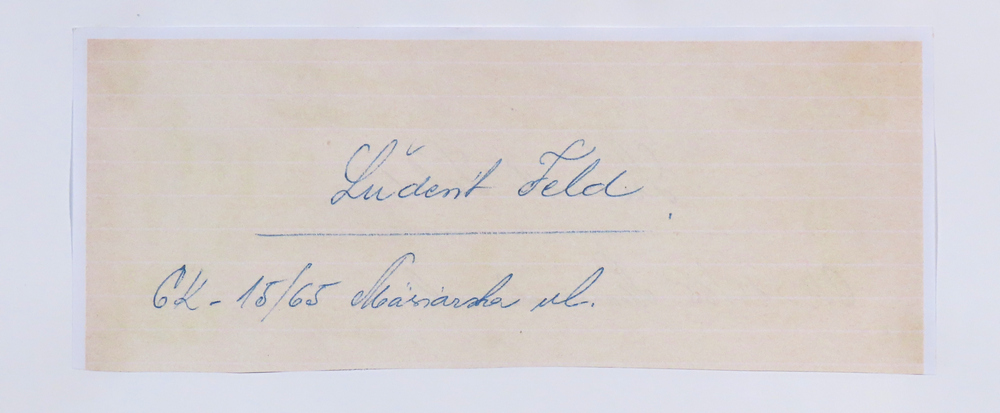 Lŭdevít Feld.
GK - 15/65 Mäsiarska ul.